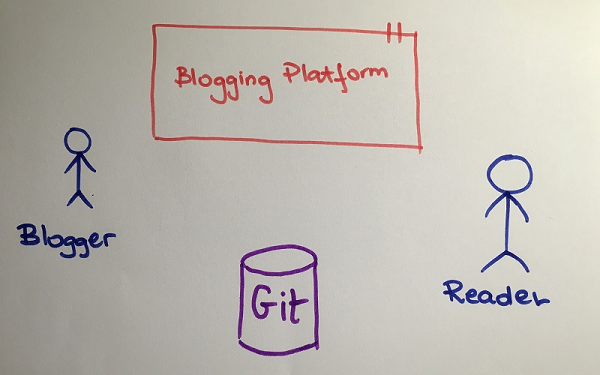 Blogging Platform
Blogger
Git
Reader